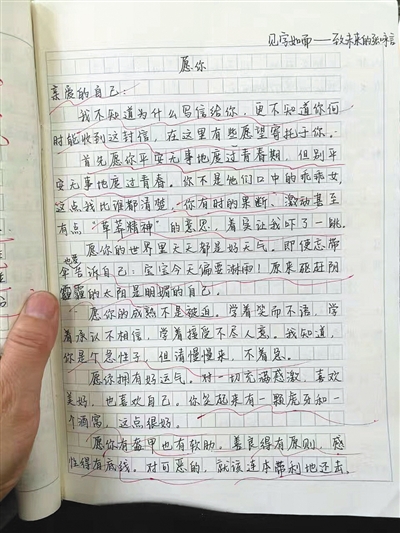 见字如面——致未来的
愿你
亲爱的自己：
我不知道为什么写信给你，更不知道你何
时能收到这封信，在这里有些愿望寄托于你。
首先愿你平安无事地度过青春期，但别平
安无事地度过青春。你不是他们口中的乖乖女，
这点我比谁都清楚。你有时的果断、激动甚至
有点“草莽精神”的意思，着实让我吓了一跳。
愿你的世界里天天都是好天气。即便忘带
也要
伞告诉自己：宝宝今天偏要淋雨！原来驱赶阴
霾的太阳是明媚的自己。
愿你的成熟不是被迫。学着笑而不语，学
着承认不相信，学着接受不尽人意。我知道，
你是个急性子，但请慢慢来，不着急。
愿你拥有好运气。对一切充满感激，喜欢
美好，也喜欢自己。你笑起来有一颗虎牙和一
个酒窝，这点很好。
愿你有盔甲也有软肋。善良得有原则，感
性得有底线。对可恶的，就该连本带利地还击，